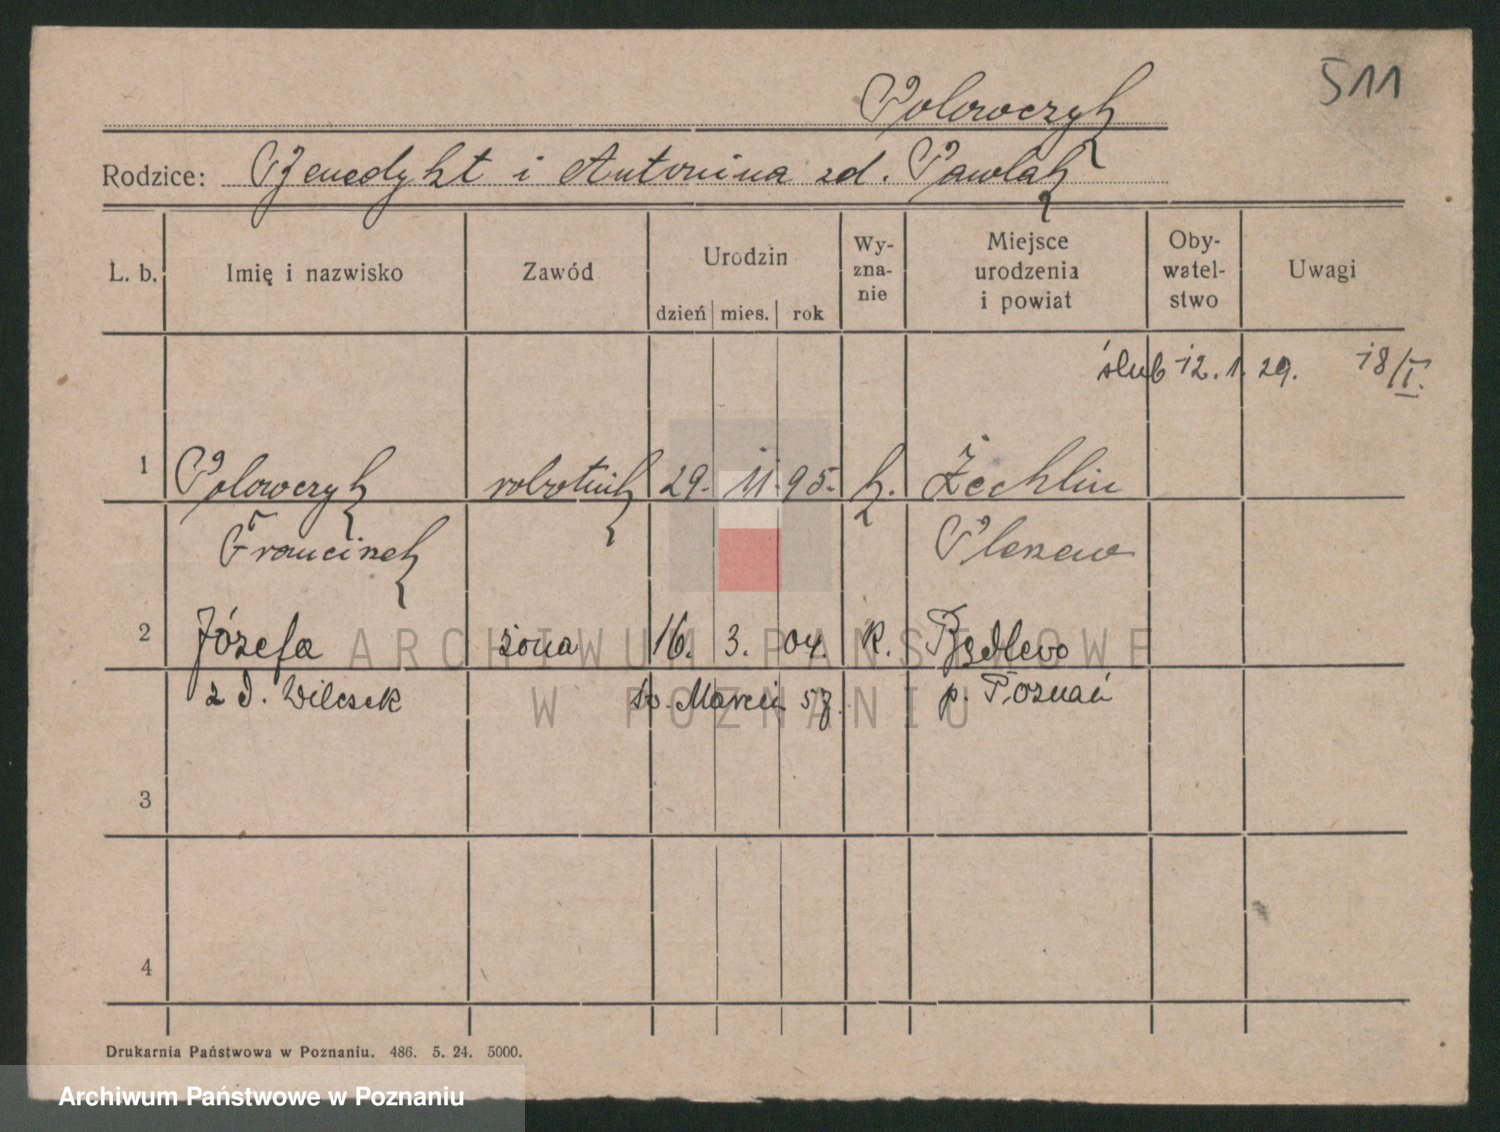 511
Polowczyk
Rodzice: Benedykt i Antonina zd. Pawlak
L. b. Imię i nazwisko Zawód Urodzin dzień mies. rok Wy-zna-nie Miejsce urodzenia i powiat Oby-watel-stwo Uwagi
ślub 12. 1. 29. 18/I.
1 Polowczyk robotnik 29. 11. 95. k. Żechlin
Franciszek Pleszew
2 Józefa żona 16. 3. 04. K. Bydlewo
z d. Wilczek Św. Marcin 57. p. Poznań
3
4
Drukarnia Państwowa w Poznaniu. 486. 5. 24. 5000.
ARCHIWUM PAŃSTWOWE
W POZNANIU
Archiwum Państwowe w Poznaniu